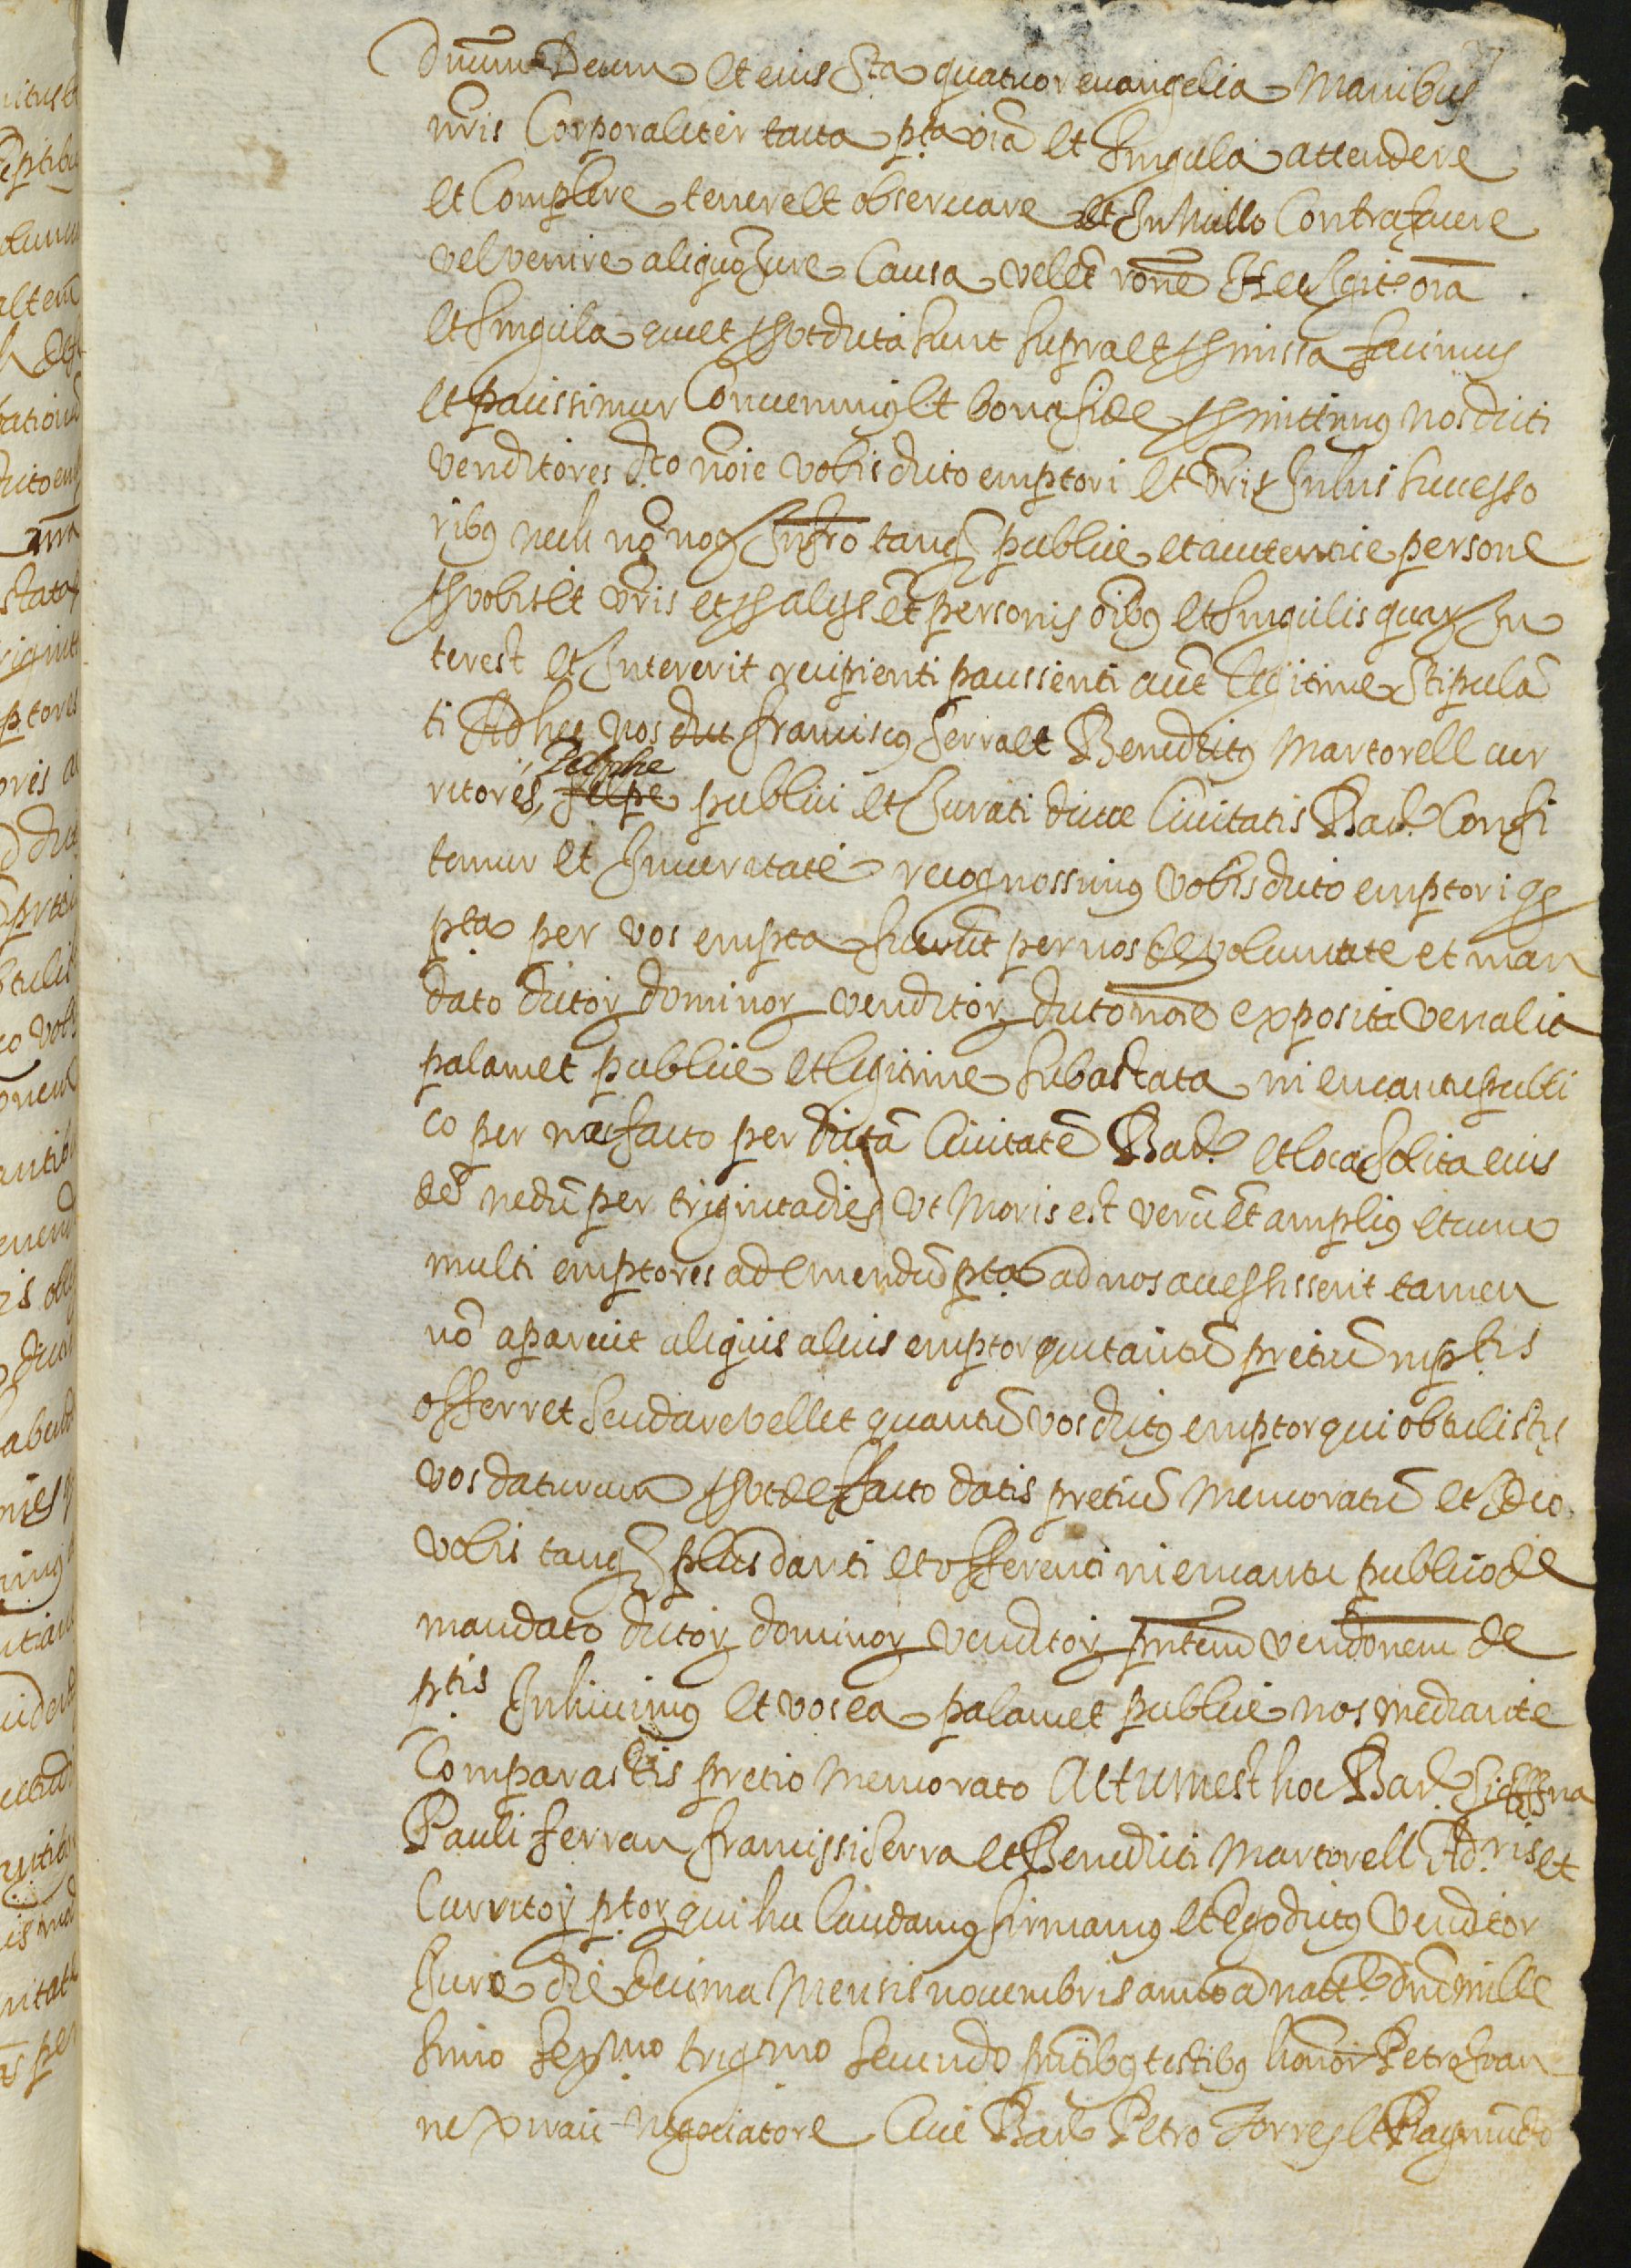 Dnum Deum et eius Sta quatuor euangelia manibus
nris Corporaliter tacta pta oia et singula attendere
et Complere tenere et obseruare et In nullo Contrafacere
vel venire aliquo Jure Causa vel et rone Hec Igit oia
et singula que et put dicta sunt supra et pmissa facimus
et pacissimur Conuenimus et bona fide pmittimus nos dicti
venditores dco noie vobis dicto emptori et vris In his successo
ribus nec no not Infro tanq publice et auctentice persone
p vobis et vris et p alijs et personis oibus et singulis quar In
terest et Intererit recipienti pacissenti ac et legitime stipula
ti Ad hec nos dict franciscus serra et Benedictus Martorell cur
ritores, felpe publici et Jurati dicte Ciuitatis Bar. Confi
temur et In veritate recognossimus vobis dicto emptori q
pta per vos empta fuerut per nos de voluntate et man
dato dictor dominor venditor dicto noie exposita venalia
palam et publice et legitime subastata in encantu publi
co per nos facto per dicta Ciuitate Bar. et loca solita eius
de nedu per triginta dies vt moris est veru et amplius et cum
multi emptores ad emendu pta ad nos accessisserit tamen
no aparuit aliquis alius emptor qui tantu pretiu in ptis
offerret seu dare vellet quantu vos dictus emptor qui obtulistis
vos daturum put de facto datis pretiu memoratu et Ideo
vobis tanq plus danti et offerenti in encantu publico de
mandato dictor dominor venditor pntem vendonem de
ptis Inhicimus et vos ea palam et publice nos mediante
Comparastis pretio memorato Actum est hoc Bar.
Pauli ferran francissi serra et Benedicti Martorell Ad.ris et
Curritor ptor qui hec laudamus firmamus et Ego dictus venditor
Juro die decima mensis nouembris anno a natt. dni mille
simo sexmo trigmo secundo pntibus testibus honor Petro fran
negociatore Ciue Bar Petro Torres et Raymundo